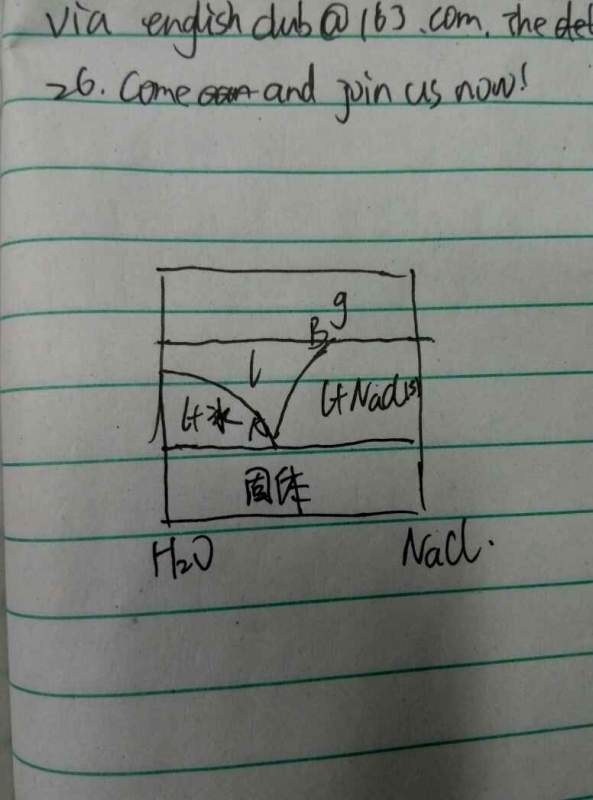 via english club@163.com. The det
26. Come and join us now!
g
B
l
l+冰
A
l+NaCl(s)
固体
H₂O
NaCl.